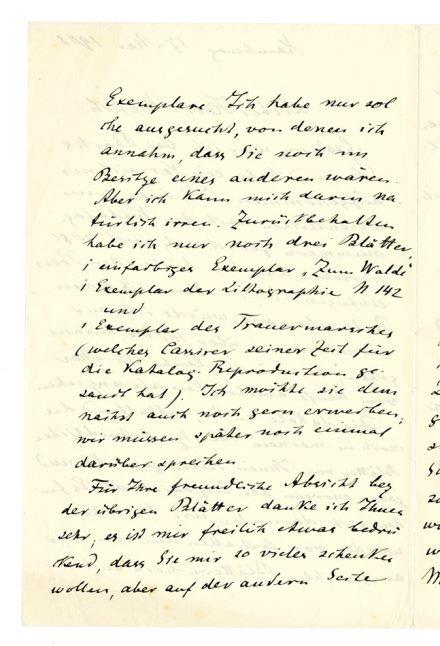 Exemplare. Ich habe nur sol
che ausgesucht, von denen ich
annahm, dass Sie noch im
Besitze eines anderen wären.
Aber ich kann mich darin na
türlich irren. Zurückbehalten
habe ich nur noch drei Blätter,
1 einfarbiges Exemplar „Zum Walde“
1 Exemplar der Lithographie N 142
und
1 Exemplar des Trauermarsches
(welches Cassirer seiner Zeit für
die Katalog-Reproduction ge
sandt hat). Ich möchte sie dem
nächst auch noch gern erwerben;
wir müssen später noch einmal
darüber sprechen.
Für Ihre freundliche Absicht bez
der übrigen Blätter danke ich Ihnen
sehr; es ist mir freilich etwas bedrü
ckend, dass Sie mir so vieles schenken
wollen, aber auf der andern Seite